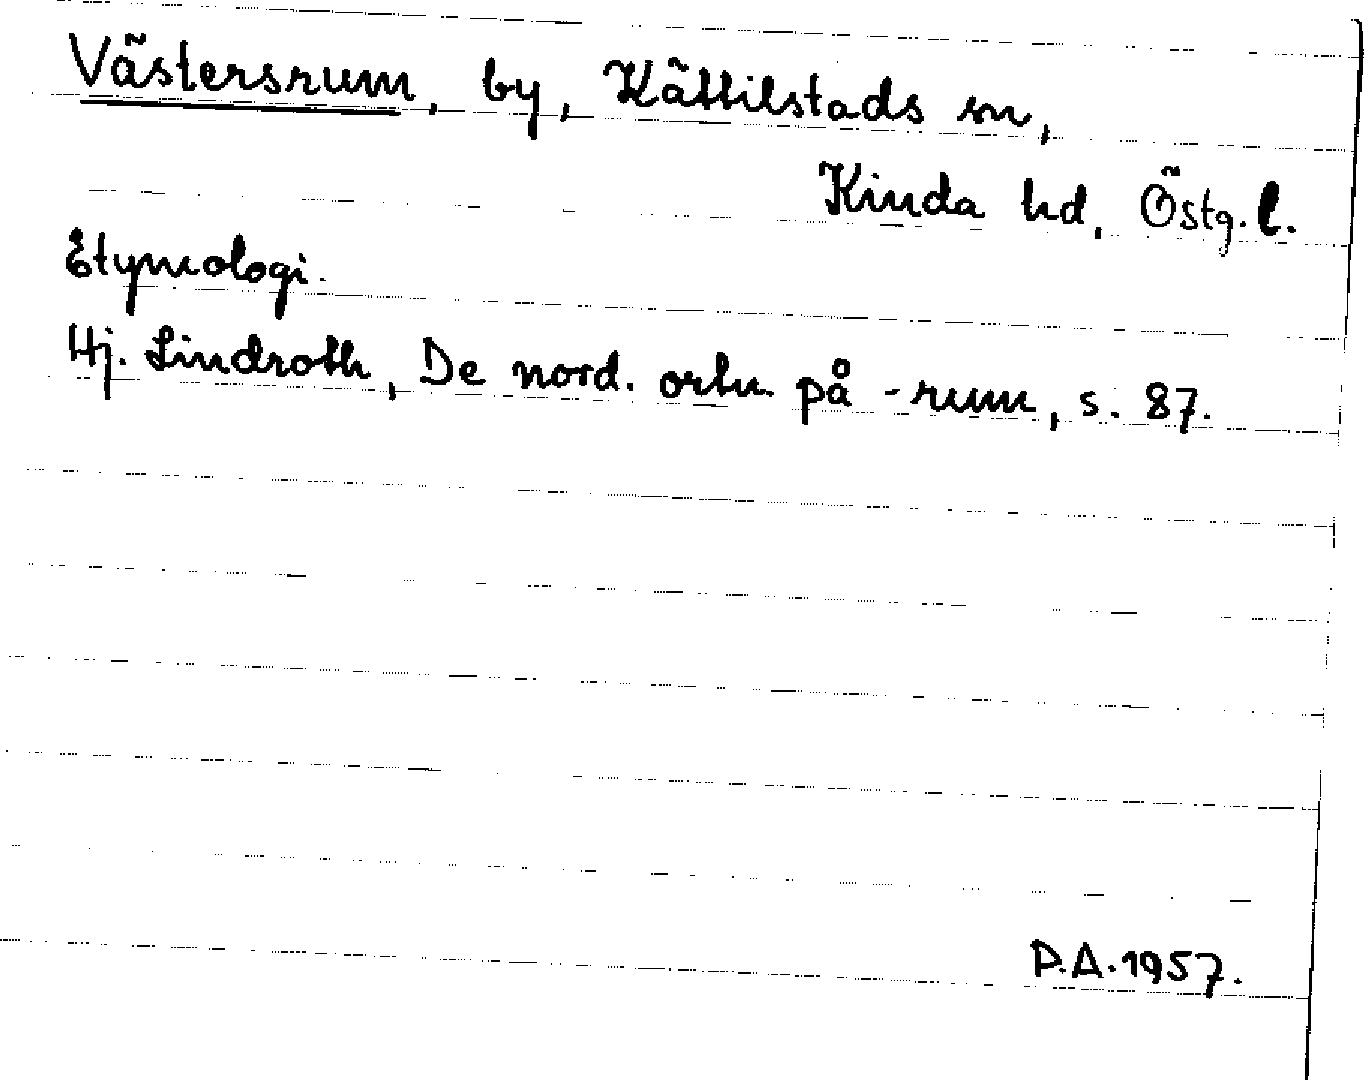 Västersrum, by, Kättilstads sn,
Kinda hd, Östg. l.
Etymologi.
Hj. Lindroth, De nord. ortn. på -rum, s. 87.
D.A. 1957.